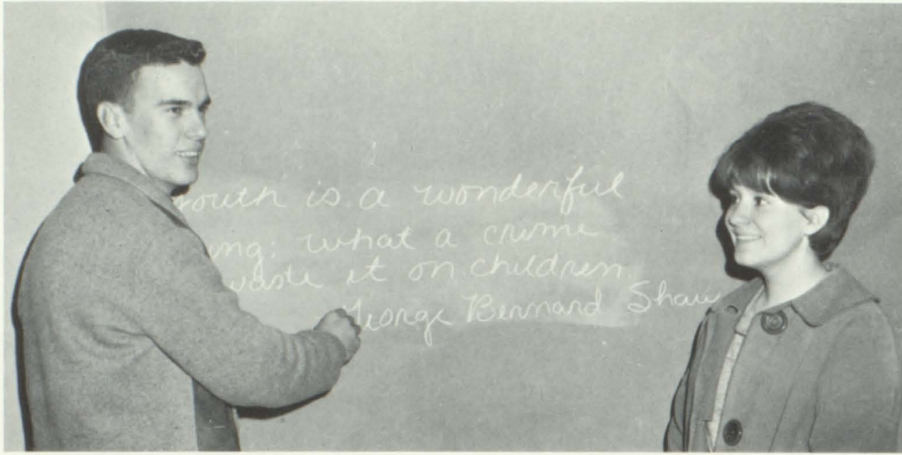 youth is a wonderful
ing: what a crime
waste it on children.
George Bernard Shaw